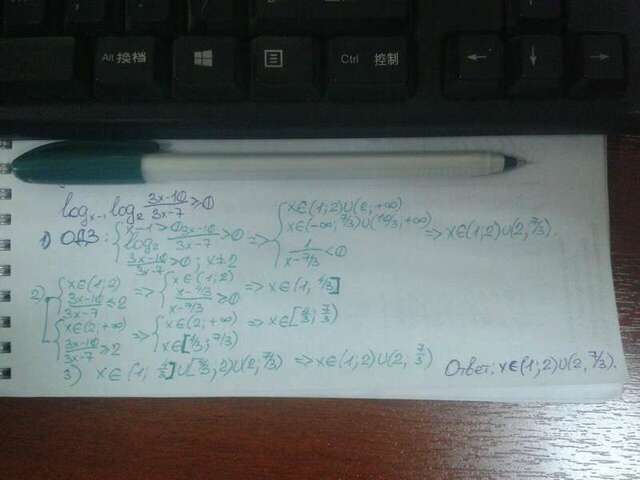 Alt 换档
Ctrl 控制
log_{x-1} log_2 \frac{3x-10}{3x-7} ≥ 0
1) ОДЗ: { x-1>0
log_2 \frac{3x-10}{3x-7} > 0
\frac{3x-10}{3x-7} > 0; x≠2
=> { x∈(1;2)∪(2;+∞)
x∈(-∞; 7/3)∪(10/3; +∞)
\frac{1}{x-7/3} < 0
=> x∈(1;2)∪(2, 7/3).
2) [ { x∈(1;2)
\frac{3x-10}{3x-7} ≤ 2
=> { x∈(1;2)
\frac{x-4/3}{x-7/3} ≥ 0
=> x∈(1, 4/3]
{ x∈(2; +∞)
\frac{3x-10}{3x-7} ≥ 2
=> { x∈(2; +∞)
x∈[4/3; 7/3)
3)
=> x∈(1;2)∪(2; 7/3)
Ответ: x∈(1;2)∪(2, 7/3).